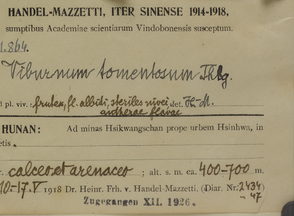 HANDEL-MAZZETTI, ITER SINENSE 1914-1918,
sumptibus Academiae scientiarum Vindobonensis susceptum.
1.864.
Viburnum tomentosum Thbg.
d pl. viv. frutex, fl. albidi, steriles nivei det. H.-M.
antherae flavae
HUNAN: Ad minas Hsikwangschan prope urbem Hsinhwa, in
etis.
calceo et arenaceo ; alt. s. m. ca. 400-700 m.
10.-17. V. 1918 Dr. Heinr. Frh. v. Handel-Mazzetti. (Diar. Nr. 2434
-47
Zugegangen XII. 1926.